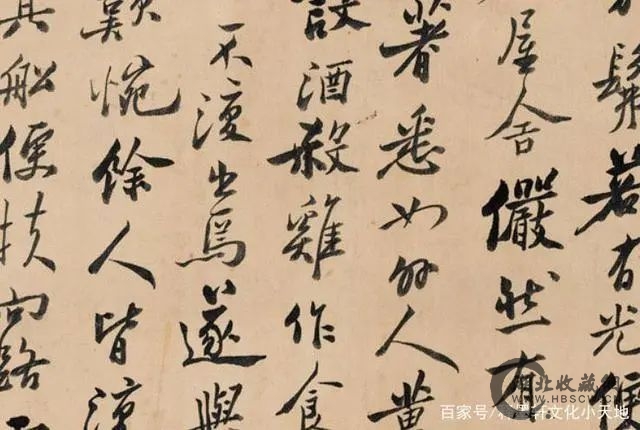 髴若有光便
屋舍儼然有
著悉如外人黃
設酒殺雞作食
不復出焉遂與
歎惋餘人皆復
其船便扶向路
北收藏网
WWW.HBSCW.COM
百家号/墨轩文化小天地